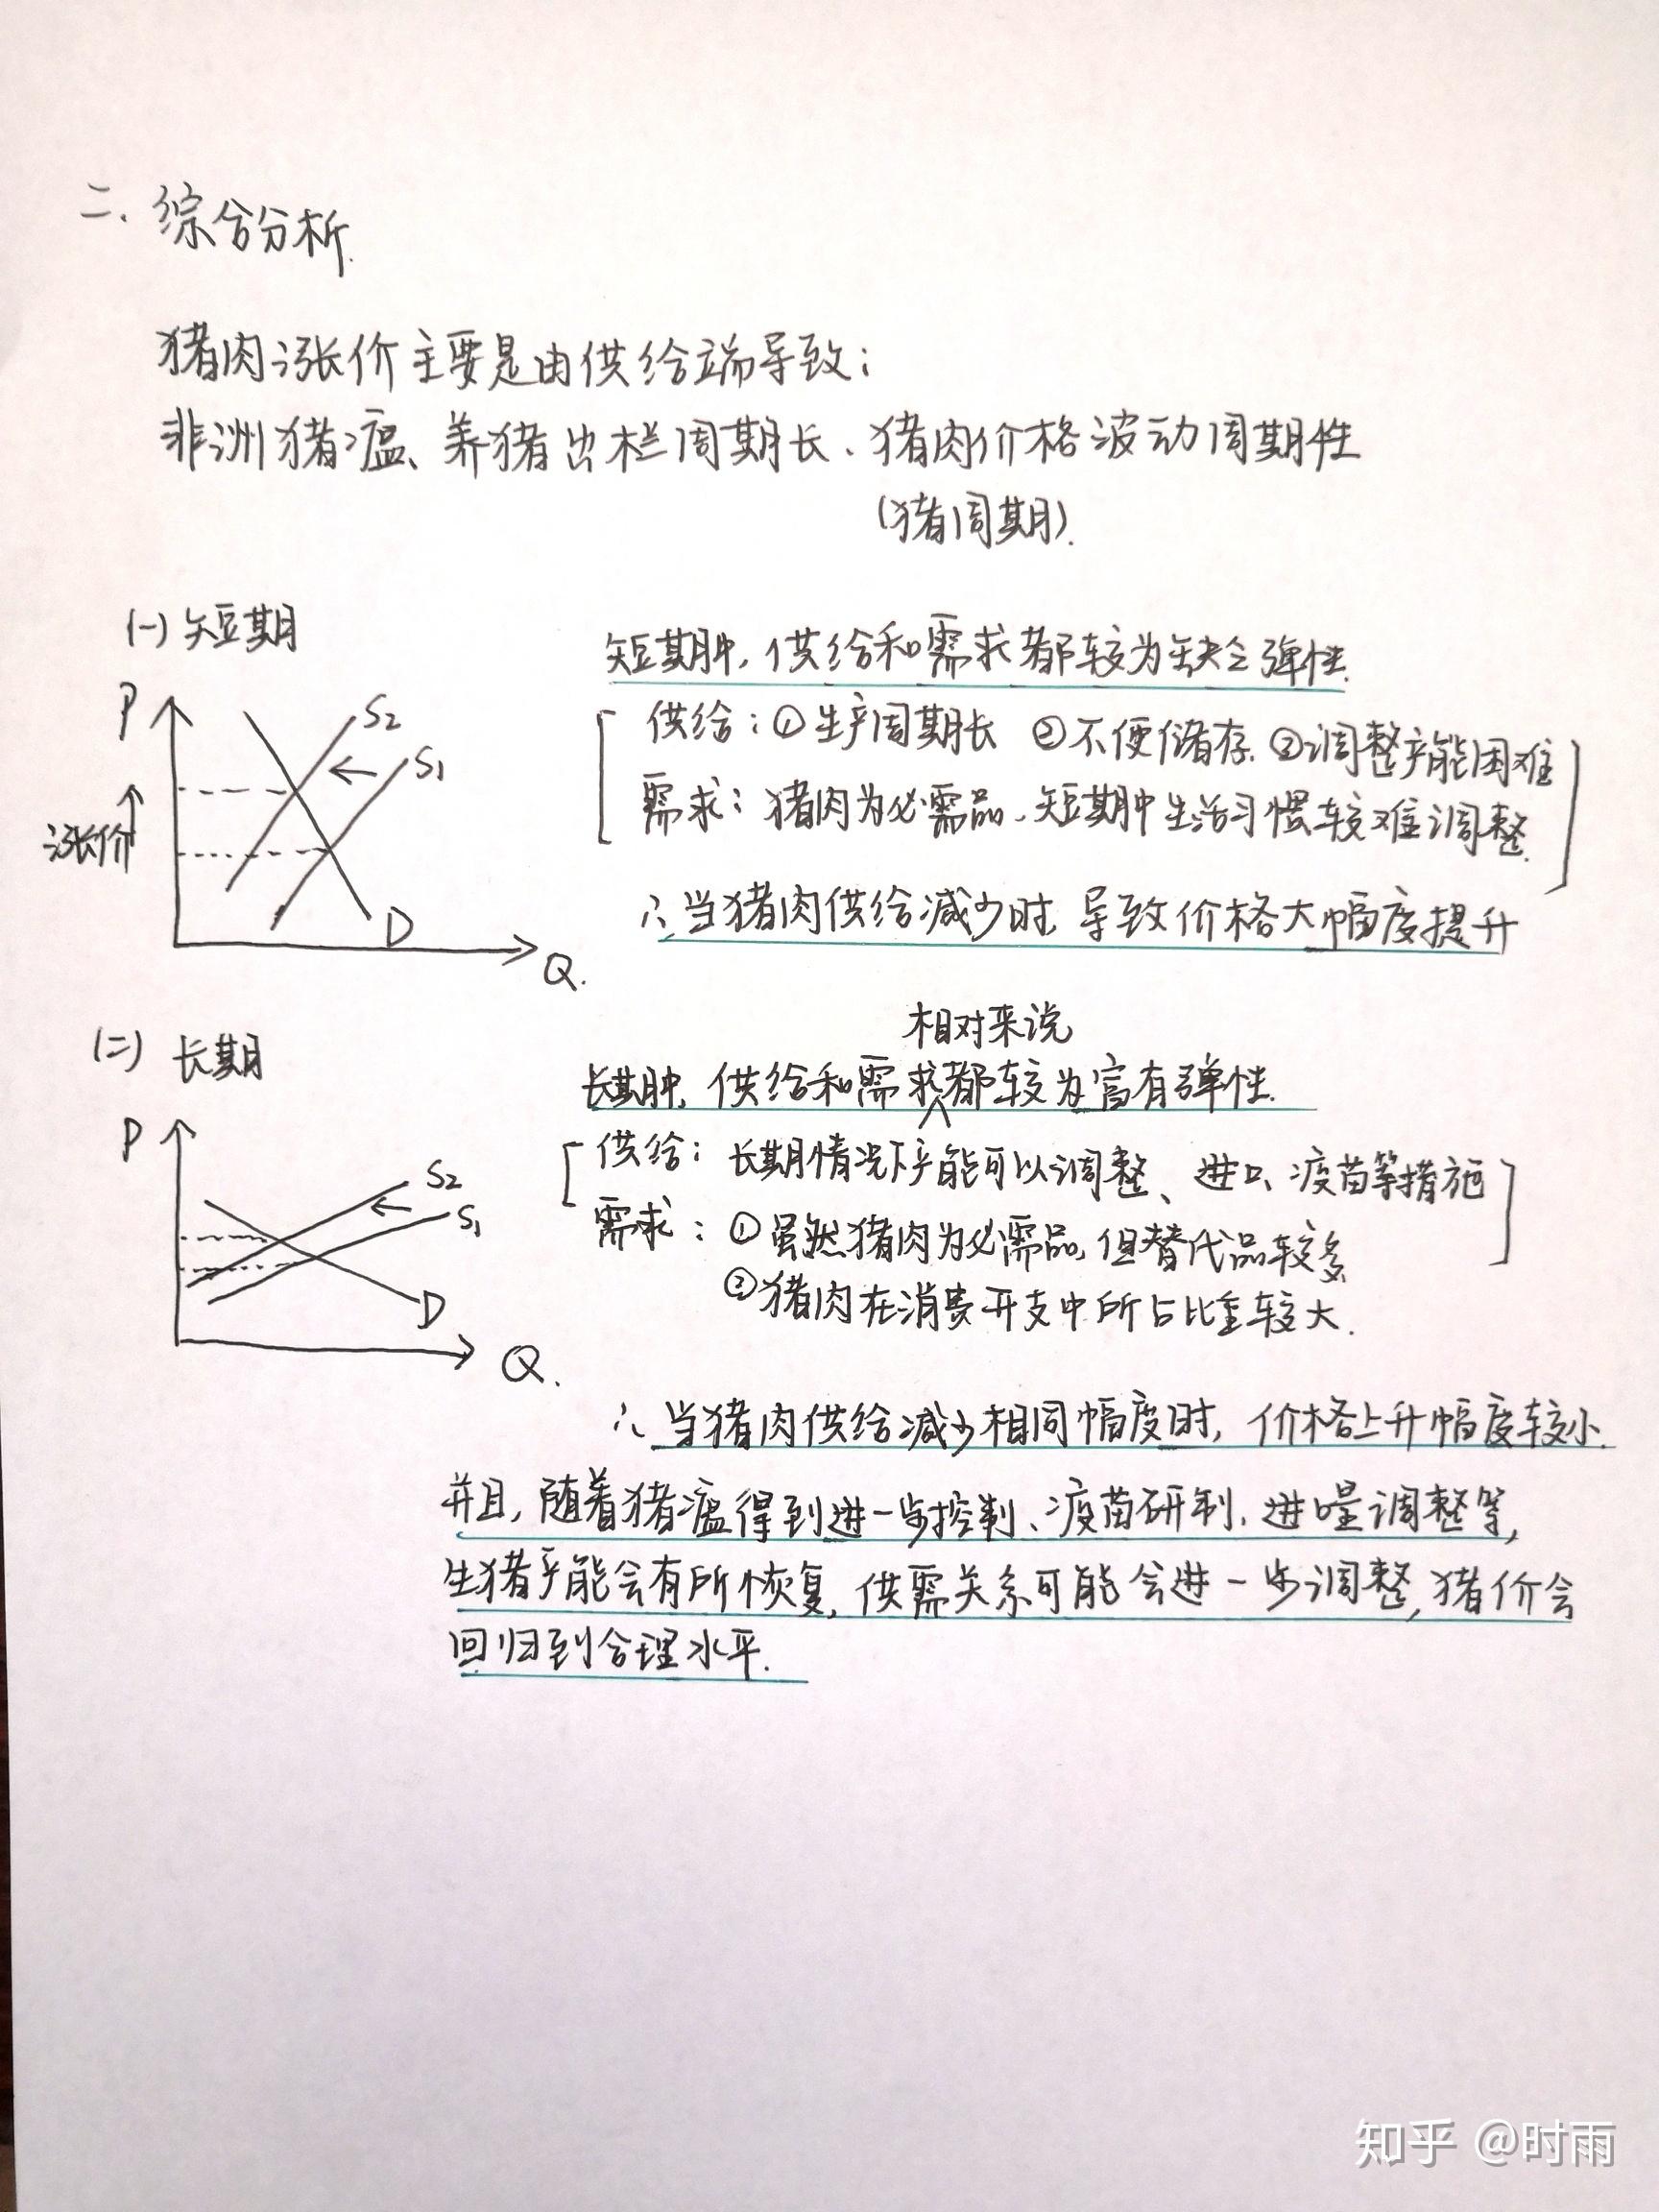 二、综合分析.
猪肉涨价主要是由供给端导致:
非洲猪瘟、养猪出栏周期长、猪肉价格波动周期性
(猪周期).
(一) 短期
P
S2
S1
涨价
D
Q.
短期中, 供给和需求都较为缺乏弹性.
供给: ①生产周期长 ②不便储存. ③调整产能困难
需求: 猪肉为必需品、短期中生活习惯较难调整.
∴当猪肉供给减少时, 导致价格大幅度提升
(二) 长期
P
S2
S1
D
Q.
相对来说
长期中, 供给和需求都较为富有弹性.
供给: 长期情况下产能可以调整、进口、疫苗等措施
需求: ①虽然猪肉为必需品, 但替代品较多
②猪肉在消费开支中所占比重较大.
∴当猪肉供给减少相同幅度时, 价格上升幅度较小.
并且, 随着猪瘟得到进一步控制、疫苗研制、进口量调整等,
生猪产能会有所恢复, 供需关系可能会进一步调整, 猪价会
回归到合理水平.
知乎 @时雨